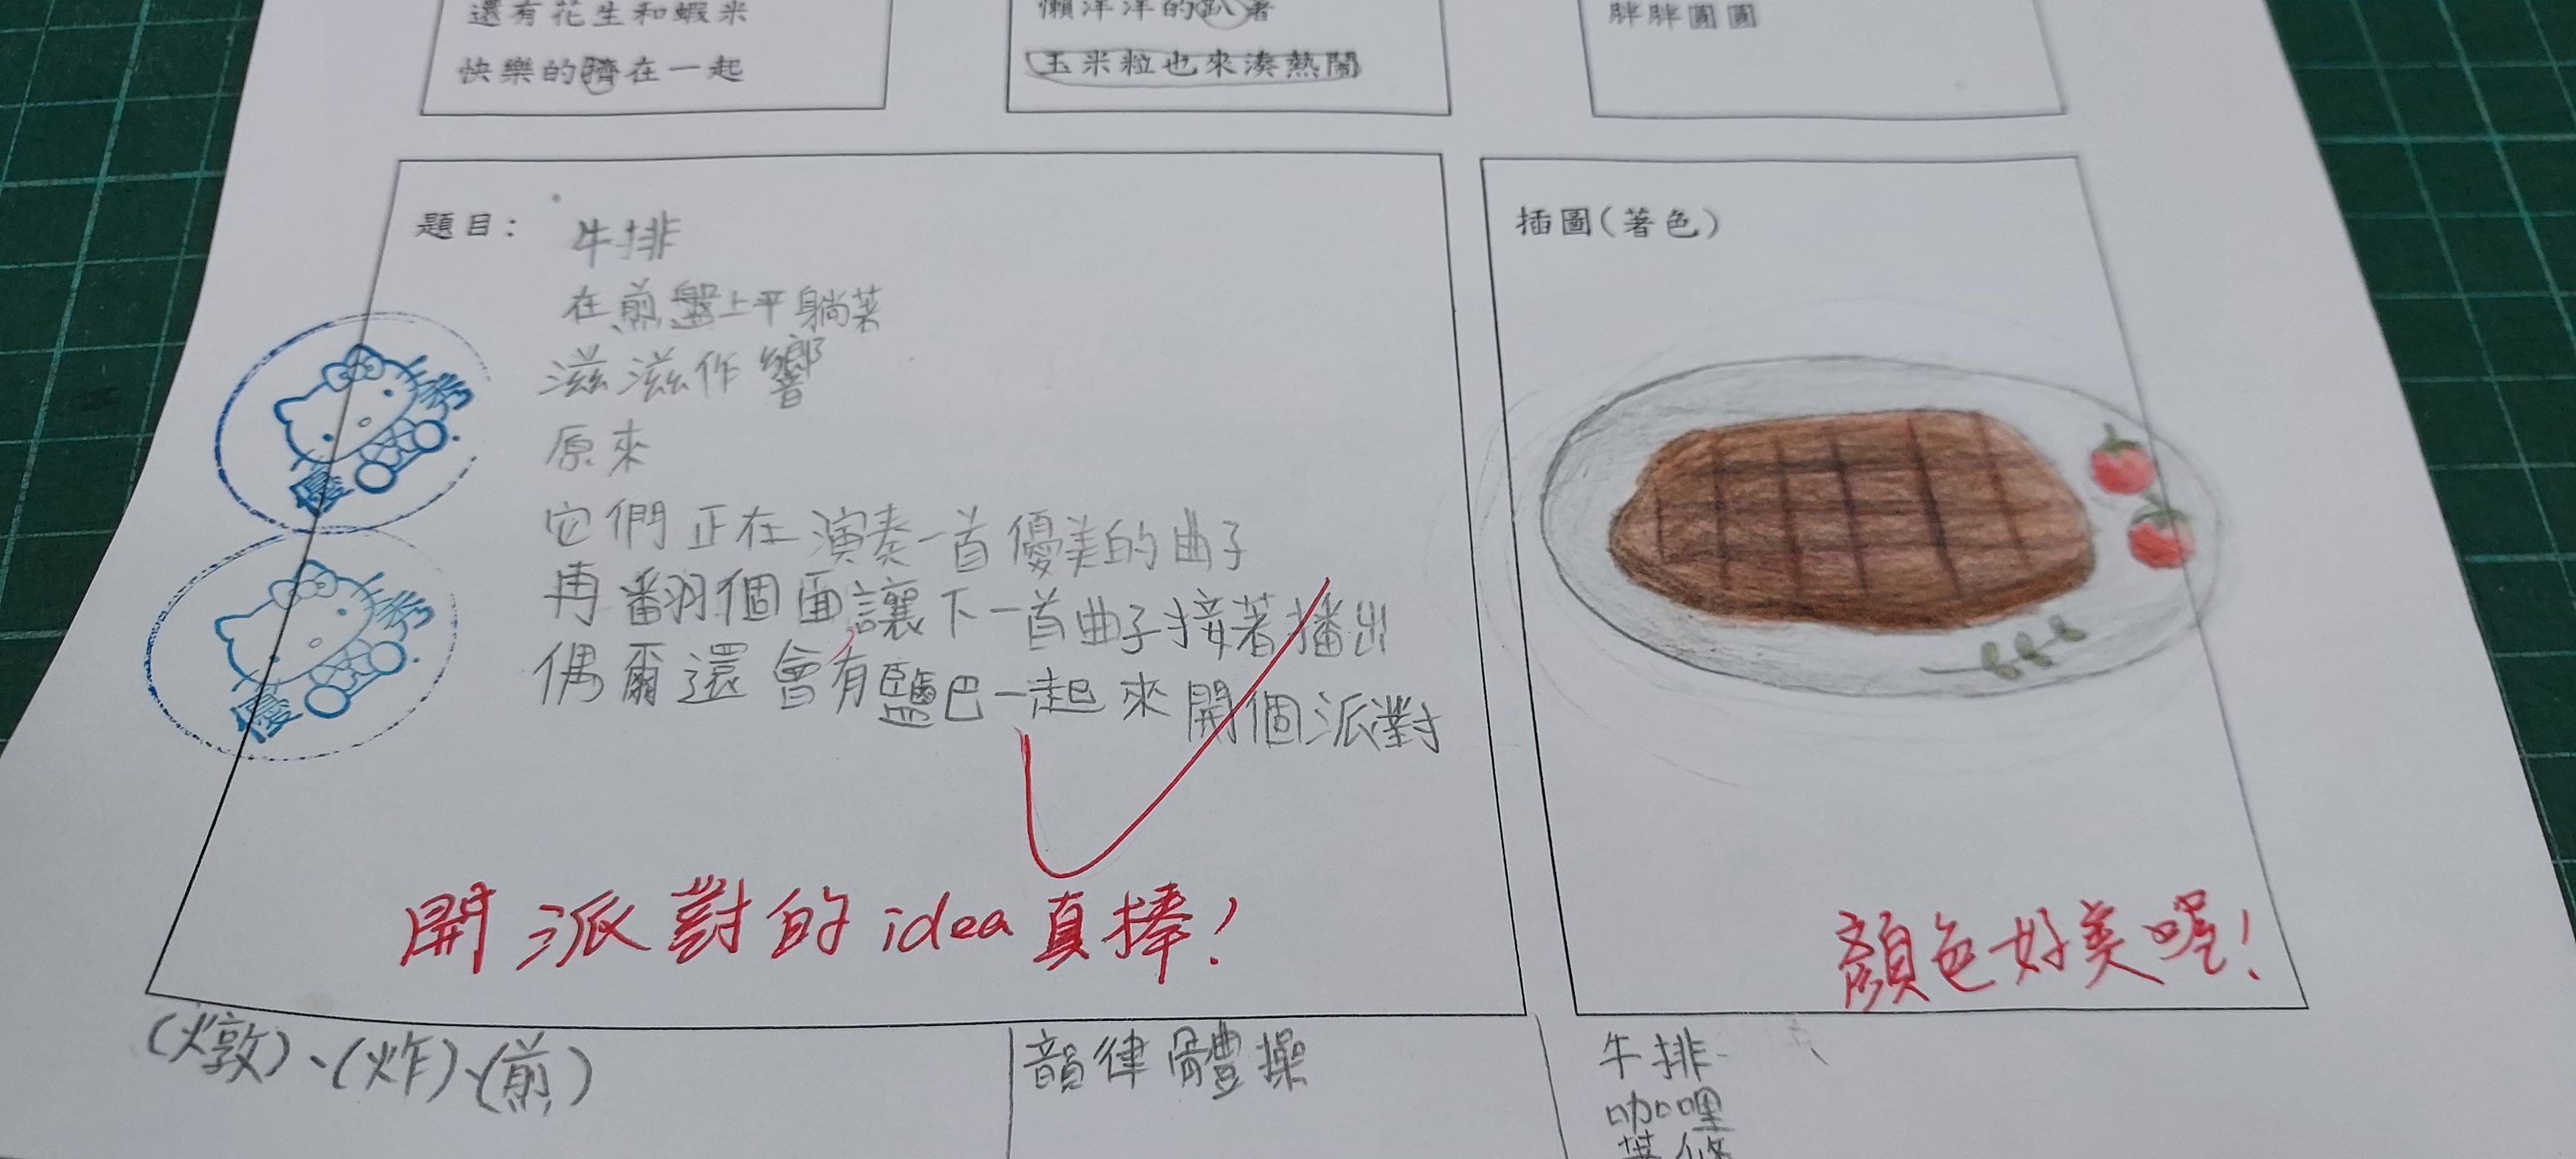 還有花生和蝦米
快樂的擠在一起
懶洋洋的趴著
玉米粒也來湊熱鬧
胖胖圓圓
題目：牛排
在煎盤上平躺著
滋滋作響
原來
它們正在演奏一首優美的曲子
再翻個面讓下一首曲子接著播出
偶爾還會有鹽巴一起來開個派對
開派對的idea真棒！
優秀
優秀
插圖（著色）
顏色好美喔！
（燉）、（炸）、（煎）
韻律體操
牛排
咖哩